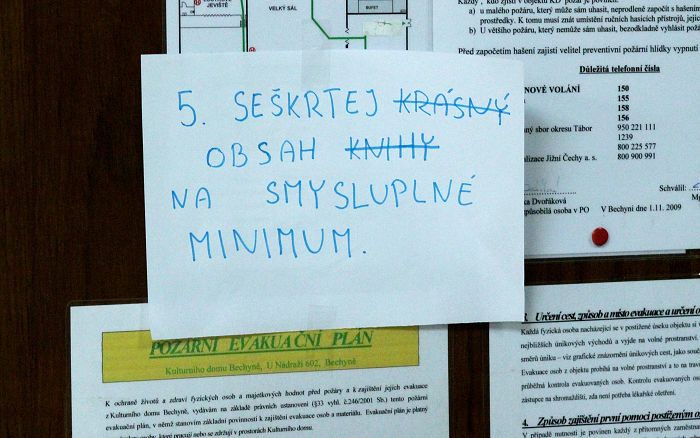 JEVIŠTĚ
VELKÝ SÁL
BUFET
a) u malého požáru, který může sám uhasit, neprodleně započít s hašením
prostředky. K tomu musí znát umístění ručních hasících přístrojů, jejich
b) U většího požáru, který nemůže sám uhasit, bezodkladně vyhlásit požá
Před započetím hašení zajistí velitel preventivní požární hlídky vypnutí
Důležitá telefonní čísla
NOVÉ VOLÁNÍ 150
155
158
156
ný sbor okresu Tábor 950 221 111
1239
800 225 577
alizace Jižní Čechy a. s. 800 900 991
Schválil:
ka Dvořáková
působilá osoba v PO V Bechyni dne 1.11. 2009
5. SEŠKRTEJ KRÁSNÝ
OBSAH KNIHY
NA SMYSLUPLNÉ
MINIMUM.
POŽÁRNÍ EVAKUAČNÍ PLÁN
Kulturního domu Bechyně, U Nádraží 602, Bechyně
K ochraně života a zdraví fyzických osob a majetkových hodnot před požáry a k zajištění jejich evakuace
z Kulturního domu Bechyně, vydávám na základě právních ustanovení (§33 vyhl. č.246/2001 Sb.) tento požární
evakuační plán, v němž stanovím základní povinnosti k zajištění evakuace osob a materiálu. Evakuační plán je platný
osoby, které pracují nebo se zdržují v prostorách Kulturního domu.
3. Určení cest, způsob a místo evakuace a určení o
Každá fyzická osoba nacházející se v postižené úseku objektu si
nejbližších únikových východů a vyjde na volné prostranství.
směrů úniku – viz grafické znázornění únikových cest, jako sou
Evakuace osob z objektu probíhá na volné prostranství a to na trav
průběžná kontrola evakuovaných osob. Kontrolu evakuovaných os
zástupce na shromaždišti, zda není potřeba lékařské ošetření.
4. Způsob zajištění první pomoci postiženým o
V případě nutnosti je povinen každý z přítomných zaměstn